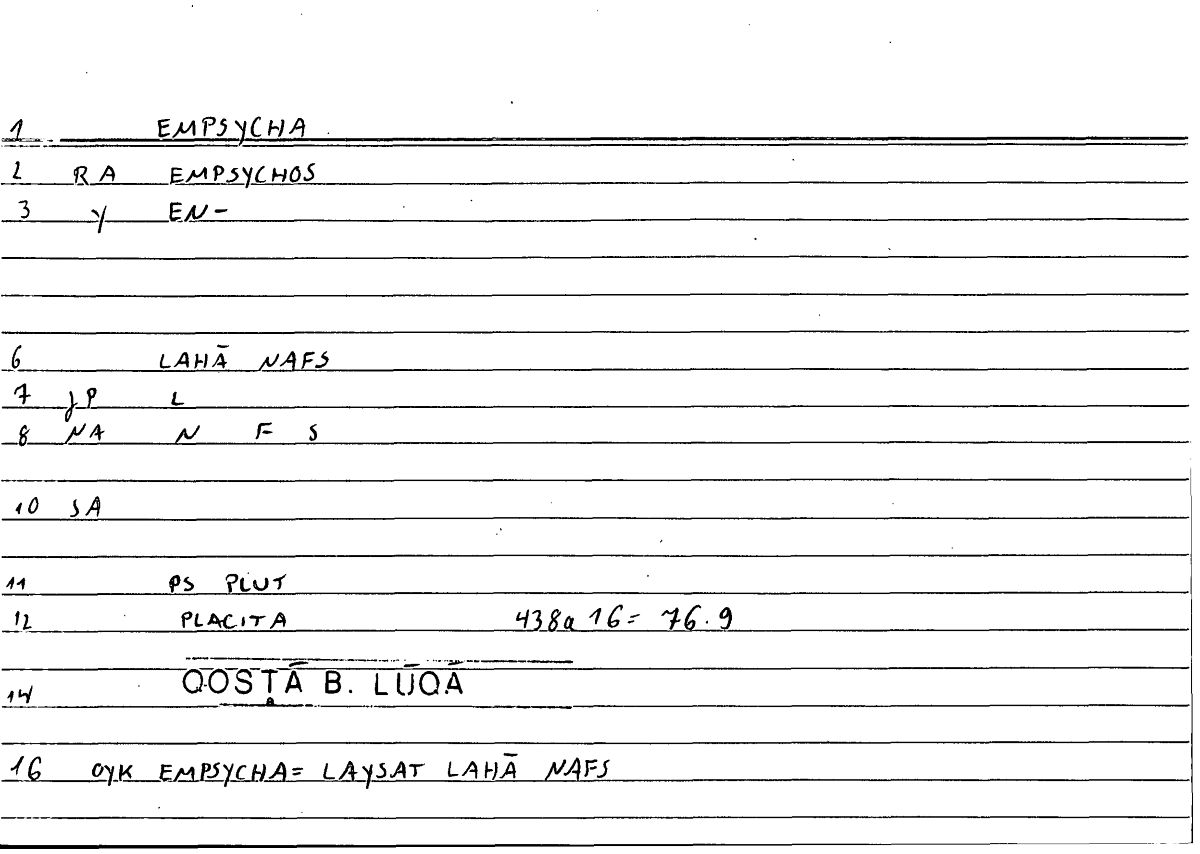 1 EMPSYCHA
2 RA EMPSYCHOS
3 Y EN-
6 LAHĀ NAFS
7 JP L
8 NA N F S
10 SA
11 PS PLUT
12 PLACITA 438a 16= 76.9
14 QOSṬĀ B. LŪQĀ
16 OYK EMPSYCHA= LAYSAT LAHĀ NAFS